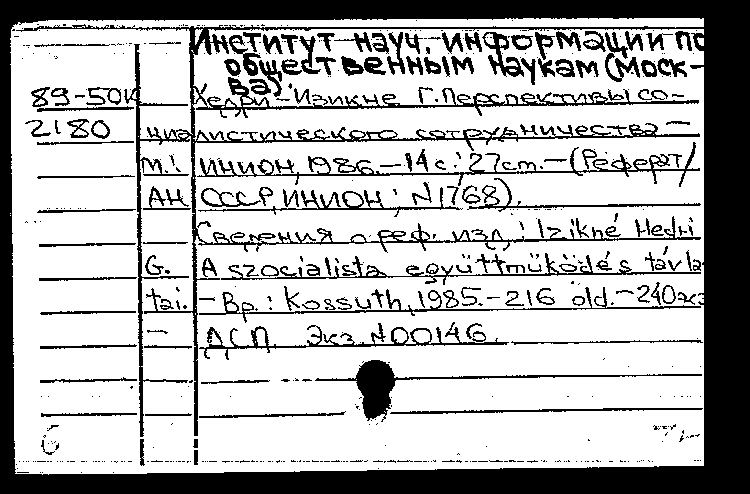 Институт науч. информации по
общественным наукам (Моск-
ва)
89-50к Хедри-Изикне Г. Перспективы со-
2180 циалистического сотрудничества -
М.: ИНИОН, 1986. - 14 с.; 27 cm. - (Реферат/
АН СССР, ИНИОН; N1768).
Сведения о реф. изд.: Izikné Hedri
G. A szocialista együttműködés távla-
tai. - Bp.: Kossuth, 1985. - 216 old. - 240экз
- ДСП. Экз. N00146.
6